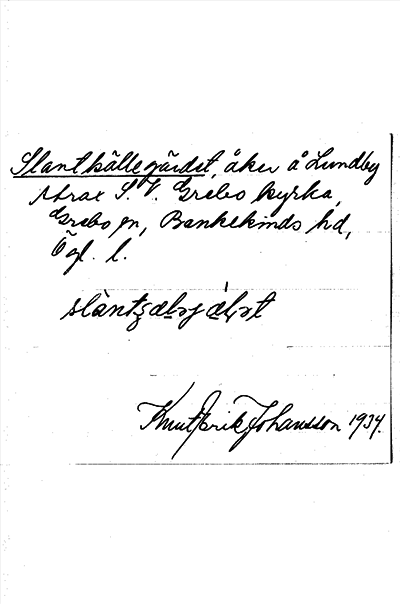 Slantkällegärdet, åker å Lundby
strax S. V. Grebo kyrka,
Grebo sn, Bankekinds hd,
Ögl. l.
Knut Erik Johansson 1934.